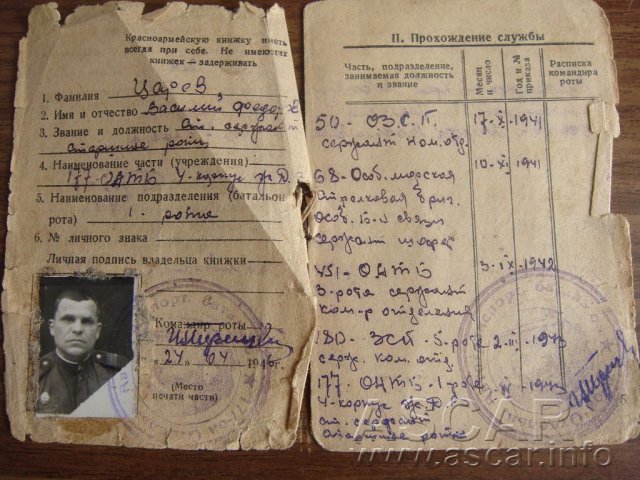 Красноармейскую книжку иметь
всегда при себе. Не имеющих
книжек — задерживать
1. Фамилия Царев
2. Имя и отчество Василий Федор
3. Звание и должность Ст. сержант
старшина роты
4. Наименование части (учреждения)
177-ОАТБ 4-корпус
5. Наименование подразделения (батальон
рота) 1-рота
6. № личного знака
Личная подпись владельца книжки
Командир роты
"24" 04 194
(Место
печати части)
II. Прохождение службы
Часть, подразделение,
занимаемая должность
и звание
Месяц
и число
Год и №
приказа
Расписка
командира
роты
50-ОЗСП 17-X 1941
сержант ком. отд.
68-Особ. морская 10-X 1941
стрелковая бриг.
Особ. б-н связи
сержант
451-ОАТБ 3-IX 1942
3-рота сержант
ком-р отделения
180-ЗСП-5-роте 2-III 1943
серж. ком. отд.
177-ОАТБ-1-роте
4-корпус
ст. сержант
старшина роты
ASCAR
www.ascar.info